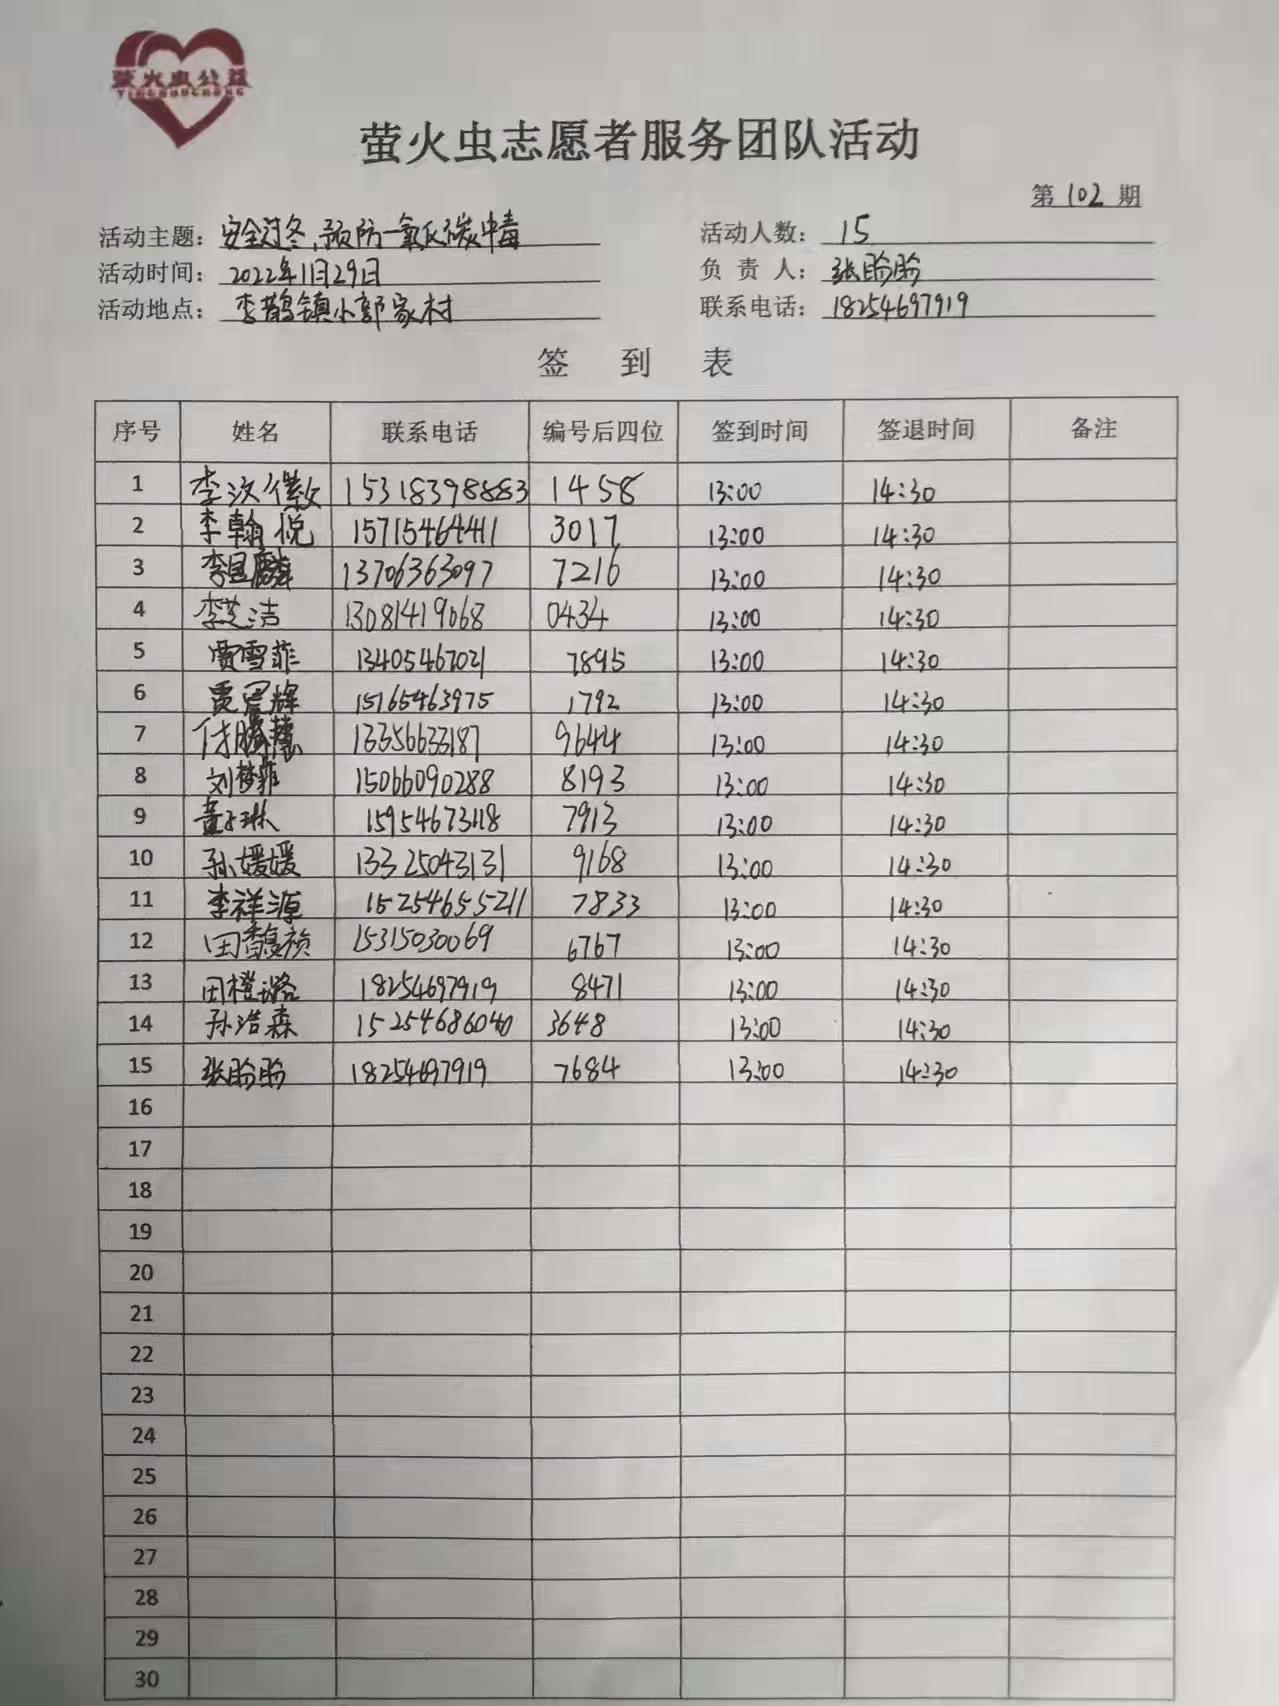 萤火虫公益
YINGHUOCHONG
萤火虫志愿者服务团队活动
第 102 期
活动主题：安全过冬，预防一氧化碳中毒 活动人数：15
活动时间：2022年11月29日 负责人：张盼盼
活动地点：李鹊镇小郭家村 联系电话：18254697919
签到表
序号 姓名 联系电话 编号后四位 签到时间 签退时间 备注
1 李汶徽 15318398883 1458 13:00 14:30
2 李翰悦 15715464411 3017 13:00 14:30
3 李昱麟 13706363097 7216 13:00 14:30
4 李芝洁 13081419068 0434 13:00 14:30
5 贾雪菲 13405467021 7895 13:00 14:30
6 15165463975 1792 13:00 14:30
7 付腾慧 13356633187 9644 13:00 14:30
8 刘梦菲 15066090288 8193 13:00 14:30
9 15954673118 7913 13:00 14:30
10 孙媛媛 13325043131 9168 13:00 14:30
11 李祥源 15254655211 7833 13:00 14:30
12 田馥祯 15315030069 6767 13:00 14:30
13 田橙璐 18254697919 8471 13:00 14:30
14 孙浩森 15254686040 3648 13:00 14:30
15 张盼盼 18254697919 7684 13:00 14:30
16
17
18
19
20
21
22
23
24
25
26
27
28
29
30